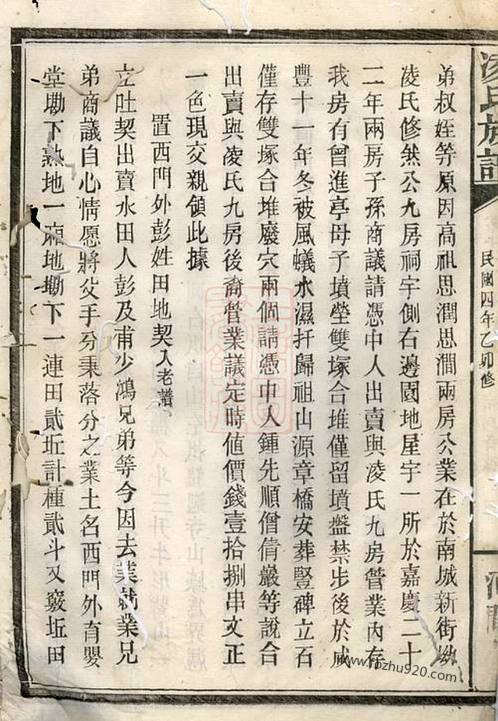 凌氏族譜
民國四年乙卯修
弟叔姪等原因高祖思潤思澗兩房公業在於南城新街坳
凌氏修煞公九房祠宇側右邊園地屋宇一所於嘉慶二十
二年兩房子孫商議請憑中人出賣與凌氏九房管業內存
我房有曾進亭母子墳塋雙塚合堆僅留墳盤禁步後於咸
豐十一年冬被風蟻水濕扦歸祖山源章橋安葬豎碑立石
僅存雙塚合堆廢穴兩個請憑中人鍾先順僧倩嚴等說合
出賣與凌氏九房後裔管業議定時値價錢壹拾捌串文正
一色現交親領此據
置西門外彭姓田地契入老譜
立吐契出賣水田人彭及甫少鴻兄弟等今因去業就業兄
弟商議自心情愿將父手分秉落分之業土名西門外育嬰
堂墈下熟地一塅地墈下一連田貳坵計種貳斗又竅坵田
www.rozhu920.com